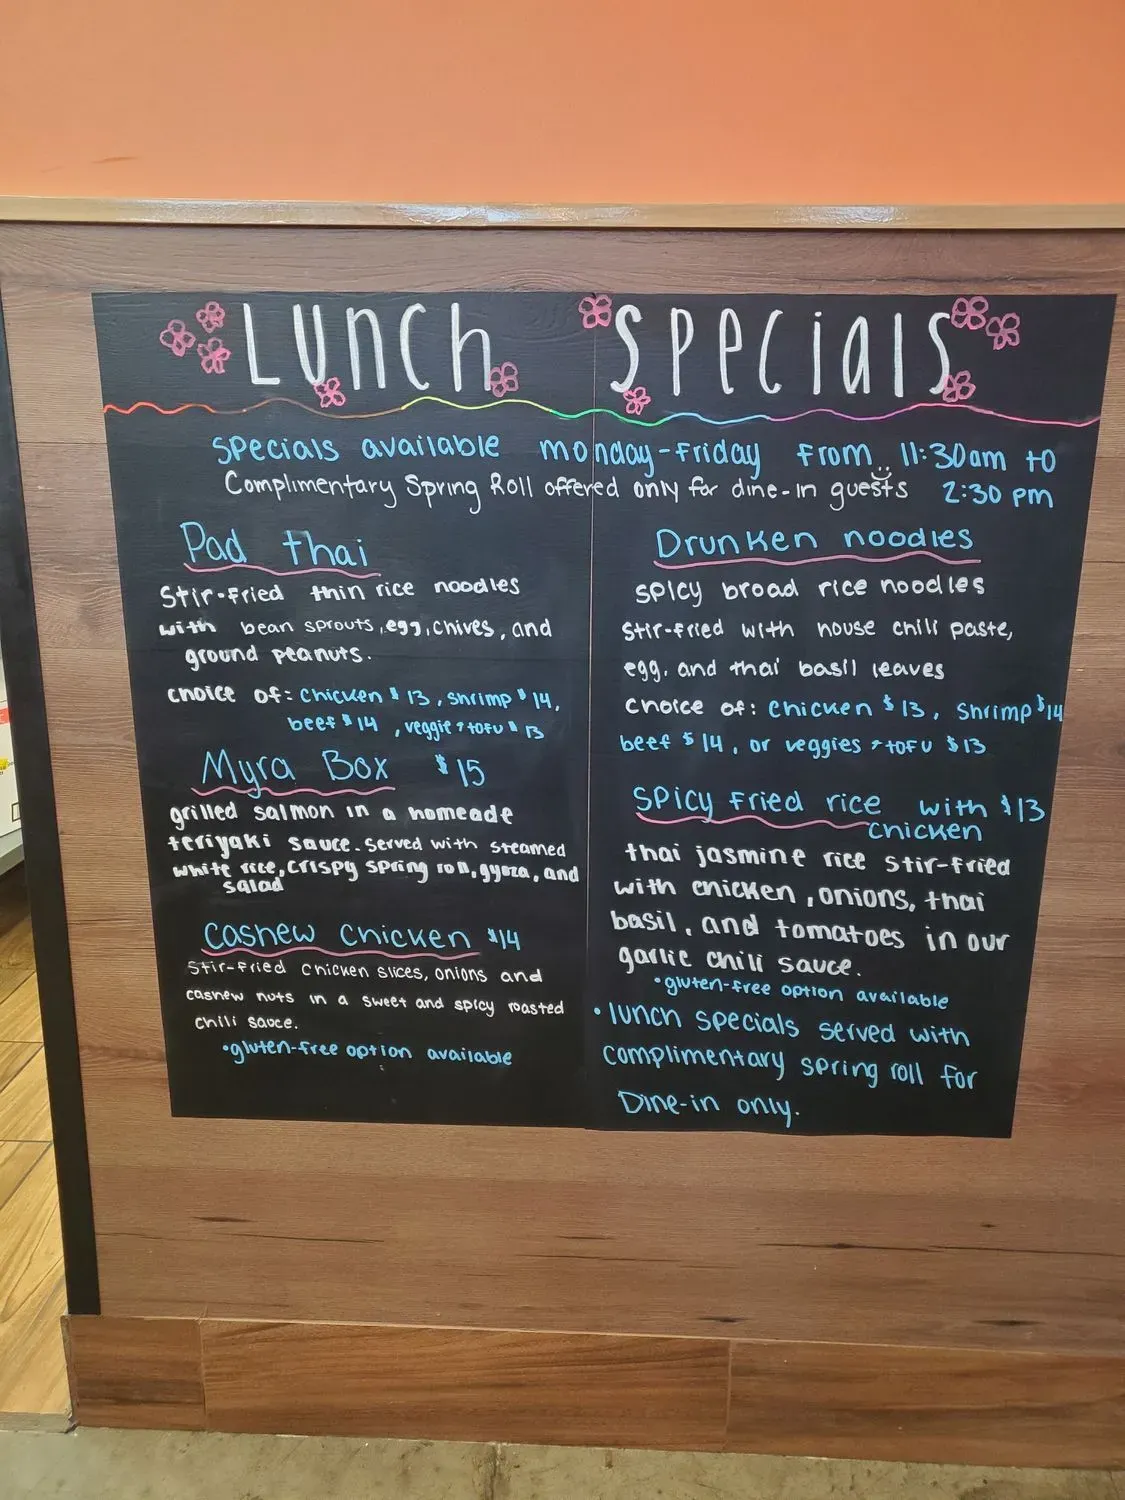 Lunch Specials
Specials available monday-Friday from 11:30am to
2:30 pm
Complimentary Spring Roll offered only for dine-in guests
Pad thai
Stir-fried thin rice noodles
with bean sprouts, egg, chives, and
ground peanuts.
choice of: chicken $13, shrimp $14,
beef $14, veggie + tofu $13
Myra Box $15
grilled salmon in a homeade
teriyaki sauce. served with steamed
white rice, crispy spring roll, gyoza, and
salad
Cashew Chicken $14
Stir-fried chicken slices, onions and
cashew nuts in a sweet and spicy roasted
chili sauce.
•gluten-free option available
Drunken noodles
spicy broad rice noodles
stir-fried with house chili paste,
egg, and thai basil leaves
choice of: chicken $13, shrimp $14
beef $14, or veggies + tofu $13
Spicy fried rice with $13
chicken
thai jasmine rice stir-fried
with chicken, onions, thai
basil, and tomatoes in our
garlic chili sauce.
•gluten-free option available
• lunch specials served with
complimentary spring roll for
Dine-in only.